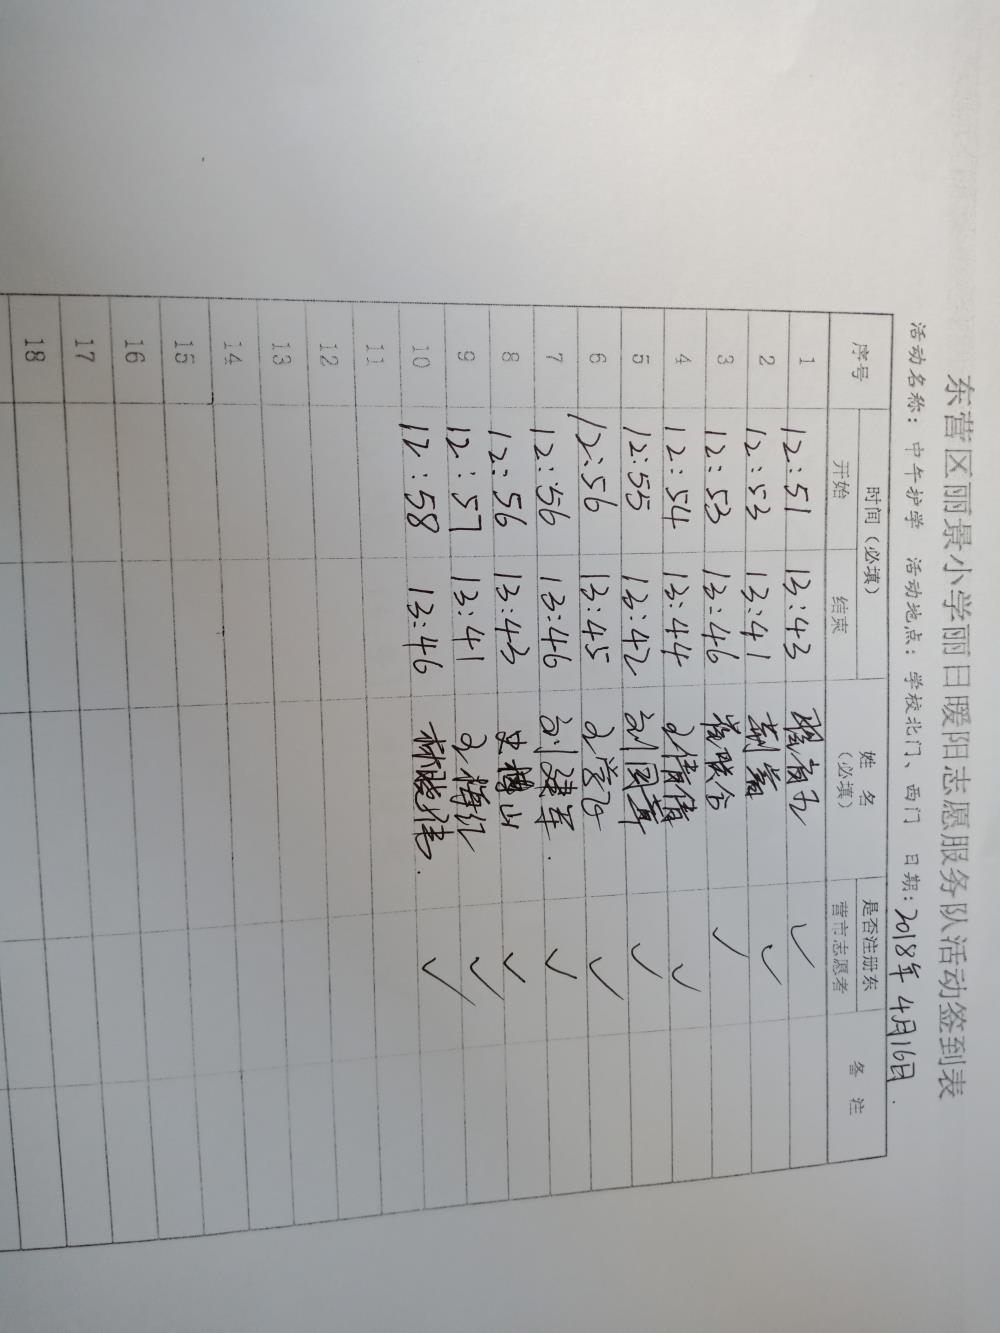 东营区丽景小学丽日暖阳志愿服务队活动签到表
活动名称：中午护学 活动地点：学校北门、西门 日期：2018年4月16日.
序号 时间（必填） 姓名（必填） 是否注册东营市志愿者 备注
开始 结束
1 12:51 13:43 ✓
2 12:53 13:41 ✓
3 12:53 13:46 ✓
4 12:54 13:44 王倩倩 ✓
5 12:55 13:42 刘国章 ✓
6 12:56 13:45 王学飞 ✓
7 12:56 13:46 刘建军. ✓
8 12:56 13:43 史博山 ✓
9 12:57 13:41 王梅红 ✓
10 12:58 13:46 林晓伟. ✓
11
12
13
14
15
16
17
18